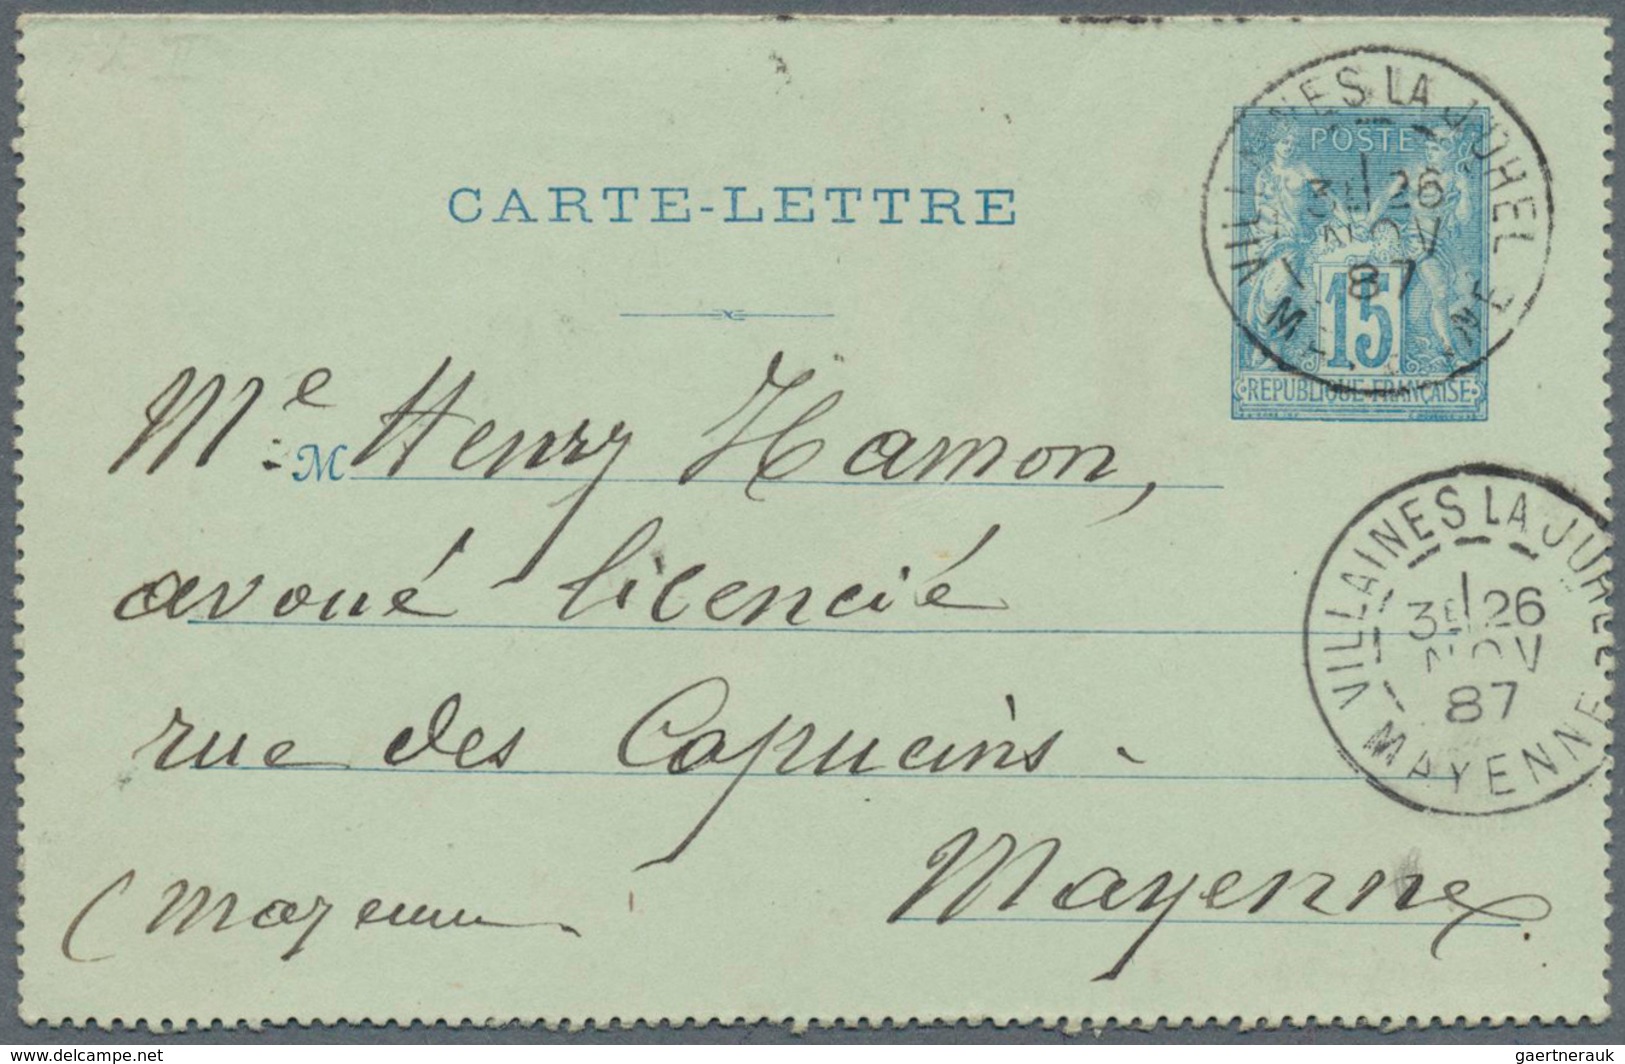 CARTE-LETTRE
POSTE
15
REPUBLIQUE FRANÇAISE
VILLAINES LA JUHEL
3E 26
NOV
87
MAYENNE
Me M Henry Hamon,
avoué licencié
rue des Capucins.
Mayenne.
(Mayenne
VILLAINES LA JUHEL
3E 26
NOV
87
MAYENNE
www.delcampe.net
gaertnerauk